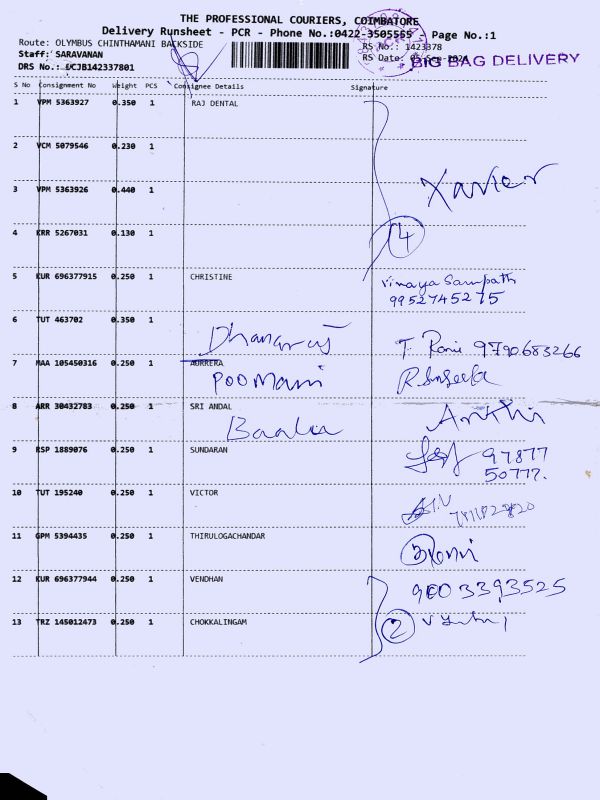 THE PROFESSIONAL COURIERS, COIMBATORE
Delivery Runsheet - PCR - Phone No.:0422-3505565 - Page No.:1
Route: OLYMBUS CHINTHAMANI BACKSIDE
RS No.: 1423378
Staff: SARAVANAN
RS Date:
BIG BAG DELIVERY
DRS No.: LCJB142337801
S No Consignment No Weight PCS Consignee Details Signature
1 VPM 5363927 0.350 1 RAJ DENTAL
2 VCM 5079546 0.230 1
Xavier
3 VPM 5363926 0.440 1
4 KRR 5267031 0.130 1
4
5 KUR 696377915 0.250 1 CHRISTINE
Vinaya Sampath
9952745275
6 TUT 463702 0.350 1
Dhanarus
T. Rani 9790683266
7 MAA 105450316 0.250 1 AURRERA
Poomani
8 ARR 30432783 0.250 1 SRI ANDAL
Baalu
9 RSP 1889076 0.250 1 SUNDARAN
97877
50777.
10 TUT 195240 0.250 1 VICTOR
11 GPM 5394435 0.250 1 THIRULOGACHANDAR
12 KUR 696377944 0.250 1 VENDHAN
9003393525
13 TRZ 145012473 0.250 1 CHOKKALINGAM
2